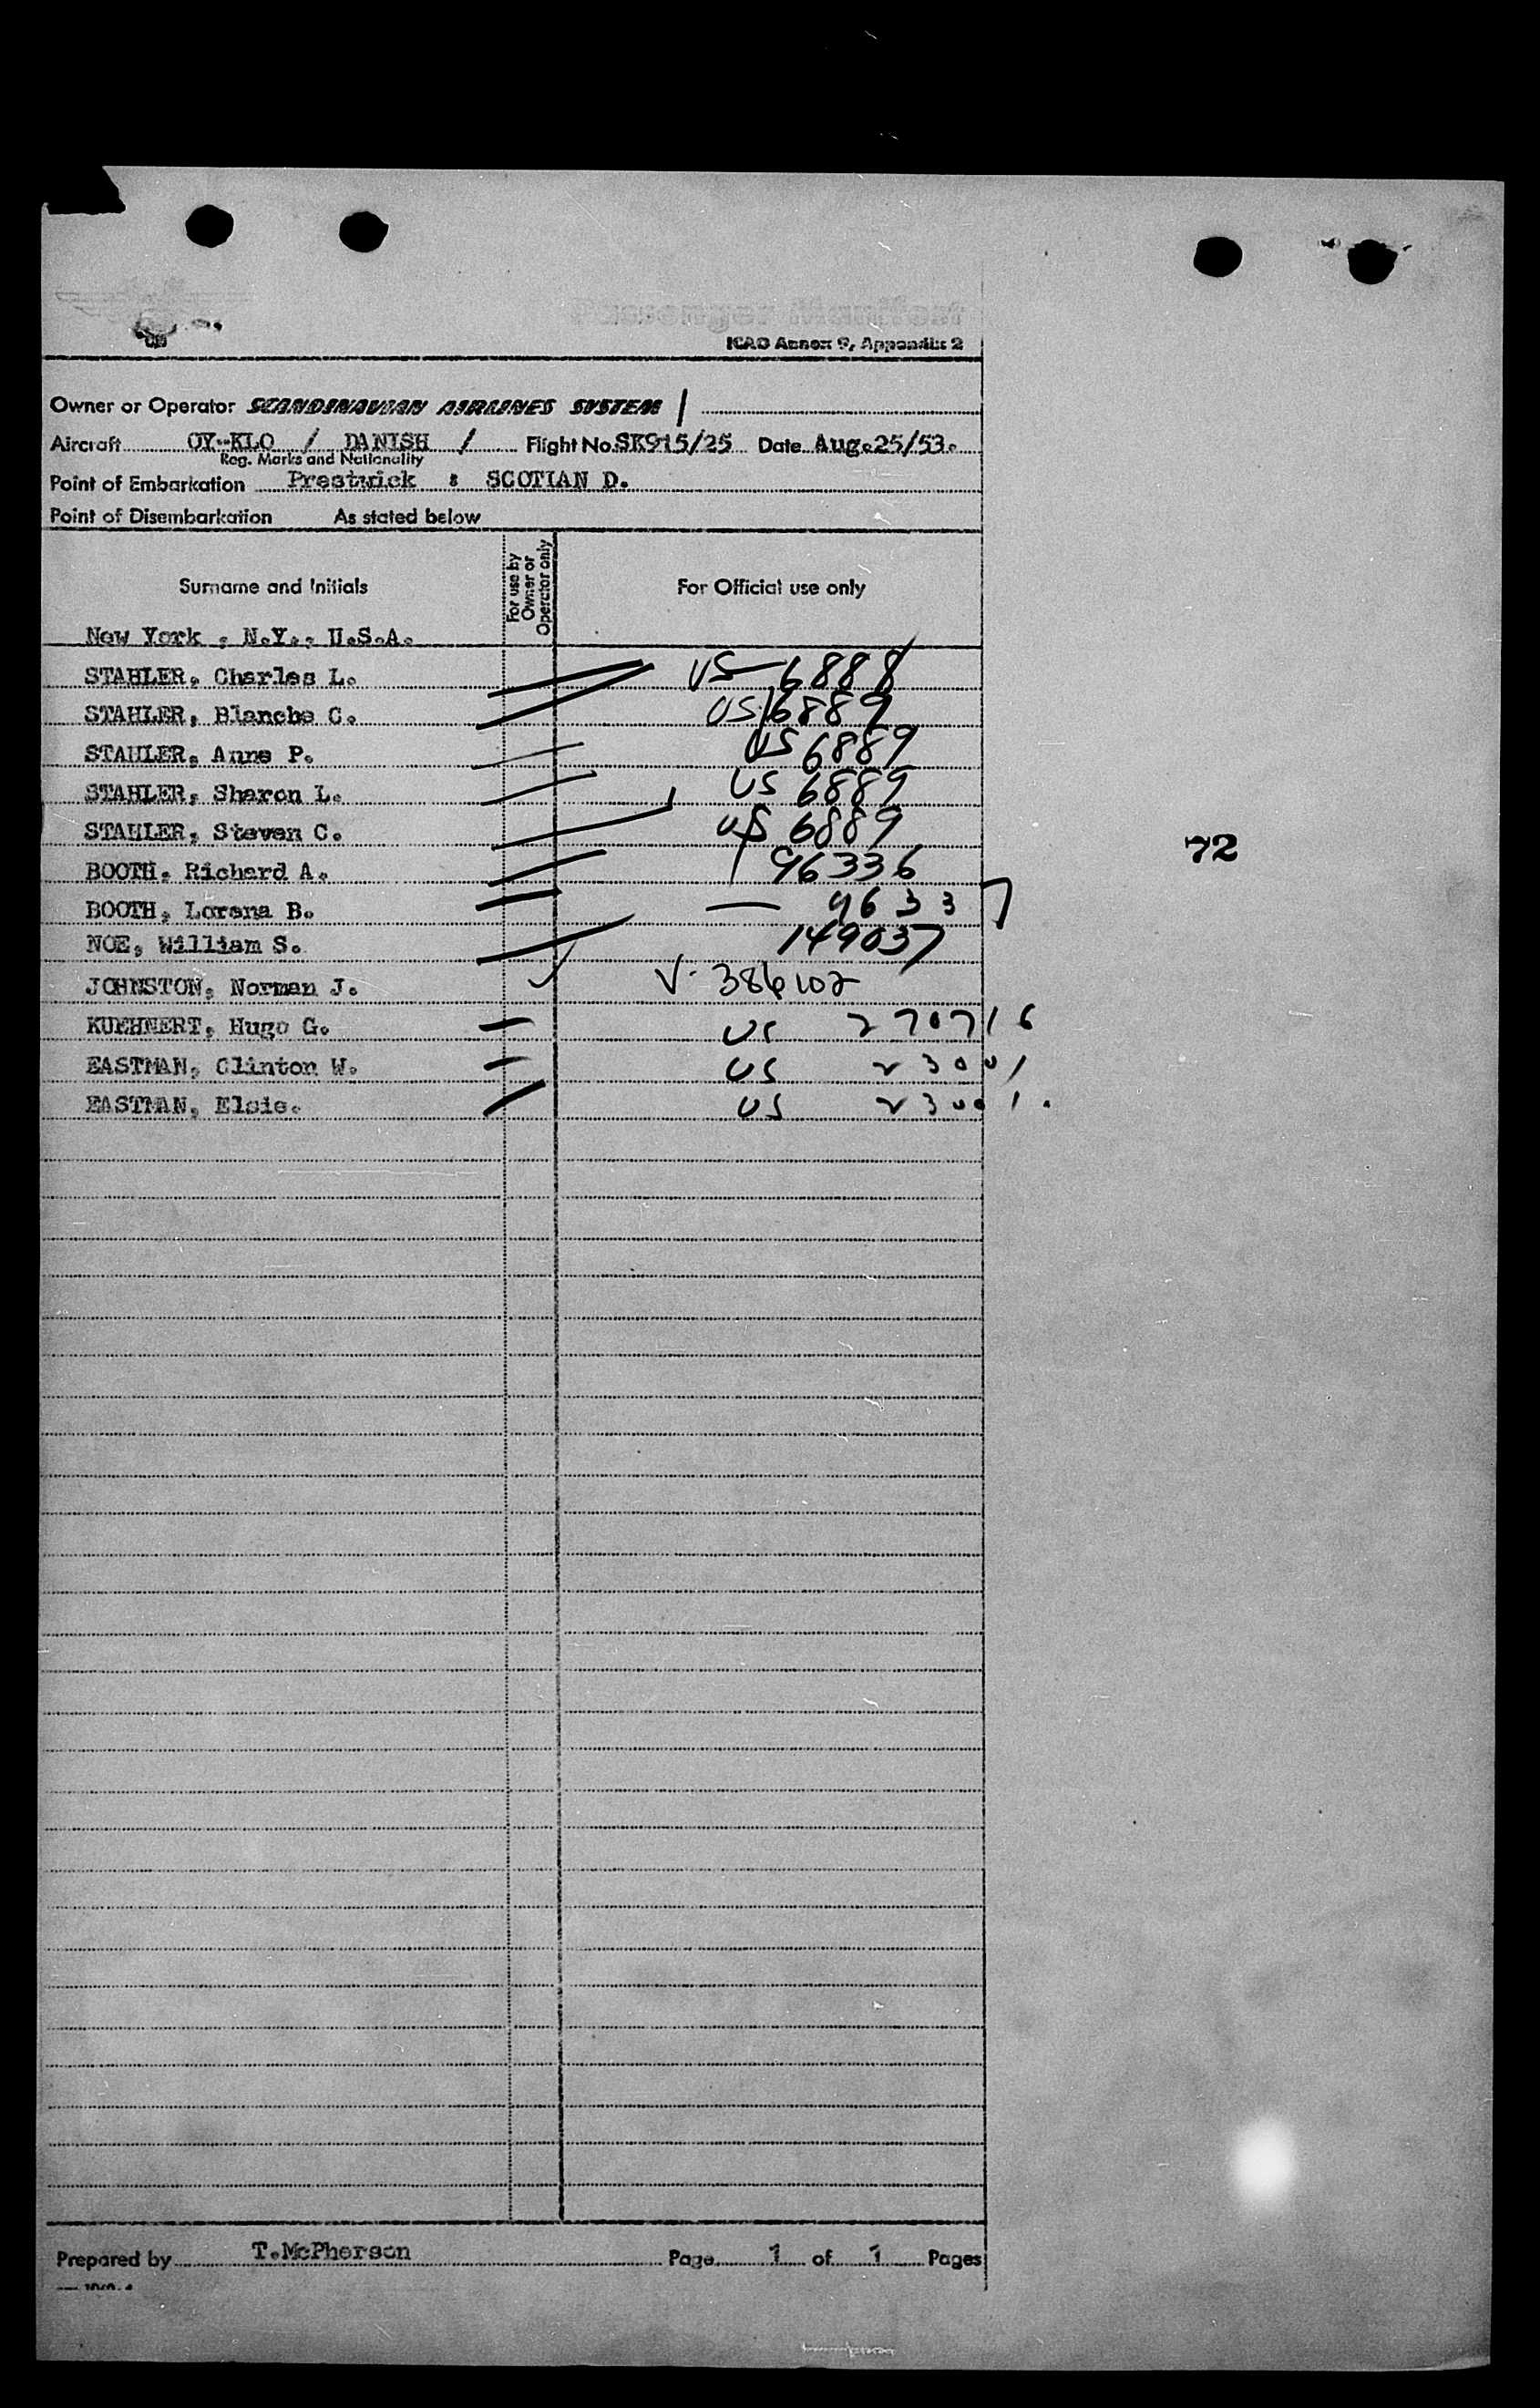 Passenger Manifest
ICAO Annex 9, Appendix 2
Owner or Operator SCANDINAVIAN AIRLINES SYSTEM
Aircraft OY-KLO / DANISH / Flight No. SK915/25 Date Aug.25/53.
Reg. Marks and Nationality
Point of Embarkation Prestwick : SCOTLAND.
Point of Disembarkation As stated below
Surname and Initials For use by Owner or Operator only For Official use only
New York , N.Y., U.S.A.
STAHLER, Charles L. US 6888
STAHLER, Blanche C. US 6889
STAHLER, Anne P. US 6889
STAHLER, Sharon L. US 6889
STAHLER, Steven C. US 6889
BOOTH, Richard A. 96336
BOOTH, Lorena B. 96337
72
NOE, William S. 149037
JOHNSTON, Norman J. V. 386102
KUEHNERT, Hugo G. US 270716
EASTMAN, Clinton W. US 23001
EASTMAN, Elsie. US 23001.
Prepared by T.McPherson Page 1 of 1 Pages